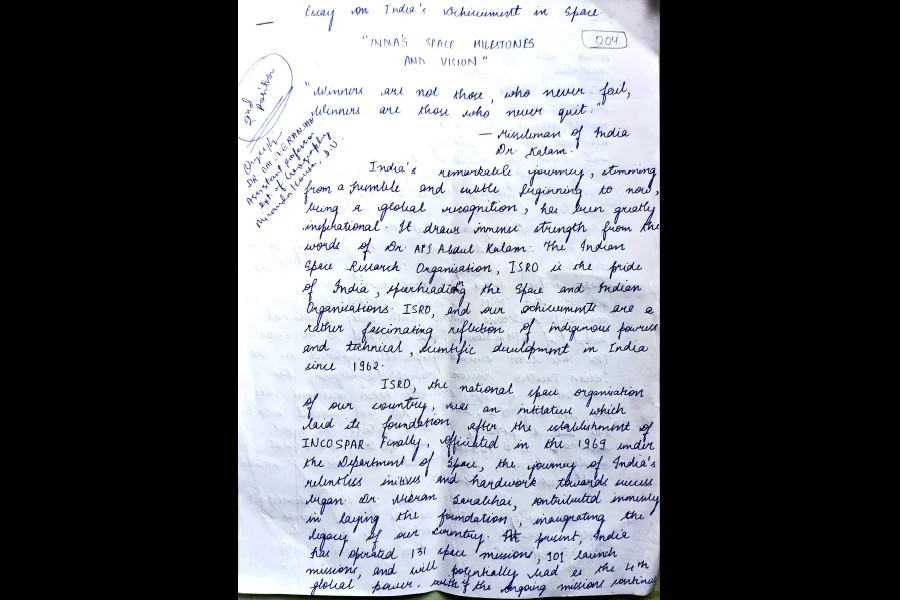 Essay on India's Achievement in Space
"INDIA'S SPACE MILESTONES
AND VISION"
004
2nd
position
Assistant professor
Dept of Geography
Miranda House, D.U.
"Winners are not those, who never fail,
Winners are those who never quit."
— Missileman of India
Dr. Kalam.
India's remarkable journey, stemming
from a humble and subtle beginning to now,
being a global recognition, has been greatly
inspirational. It draws immense strength from the
words of Dr. APJ Abdul Kalam. The Indian
Space Research Organisation, ISRO is the pride
of India, spearheading the Space and Indian
Organisations. ISRO, and our achievements are a
rather fascinating reflection of indigenous prowess
and technical, scientific development in India
since 1962.
ISRO, the national space organisation
of our country, was an initiative which
laid its foundation after the establishment of
INCOSPAR. Finally, officiated in the 1969 under
the Department of Space, the journey of India's
relentless initives and hardwork towards success
began. Dr. Vikran Sarabhai, contributed immensly
in laying the foundation, inaugrating the
legacy of our country. At present, India
has operated 131 space missions, 101 launch
missions, and will potentially lead as the 4th
global power, the ongoing missions continue